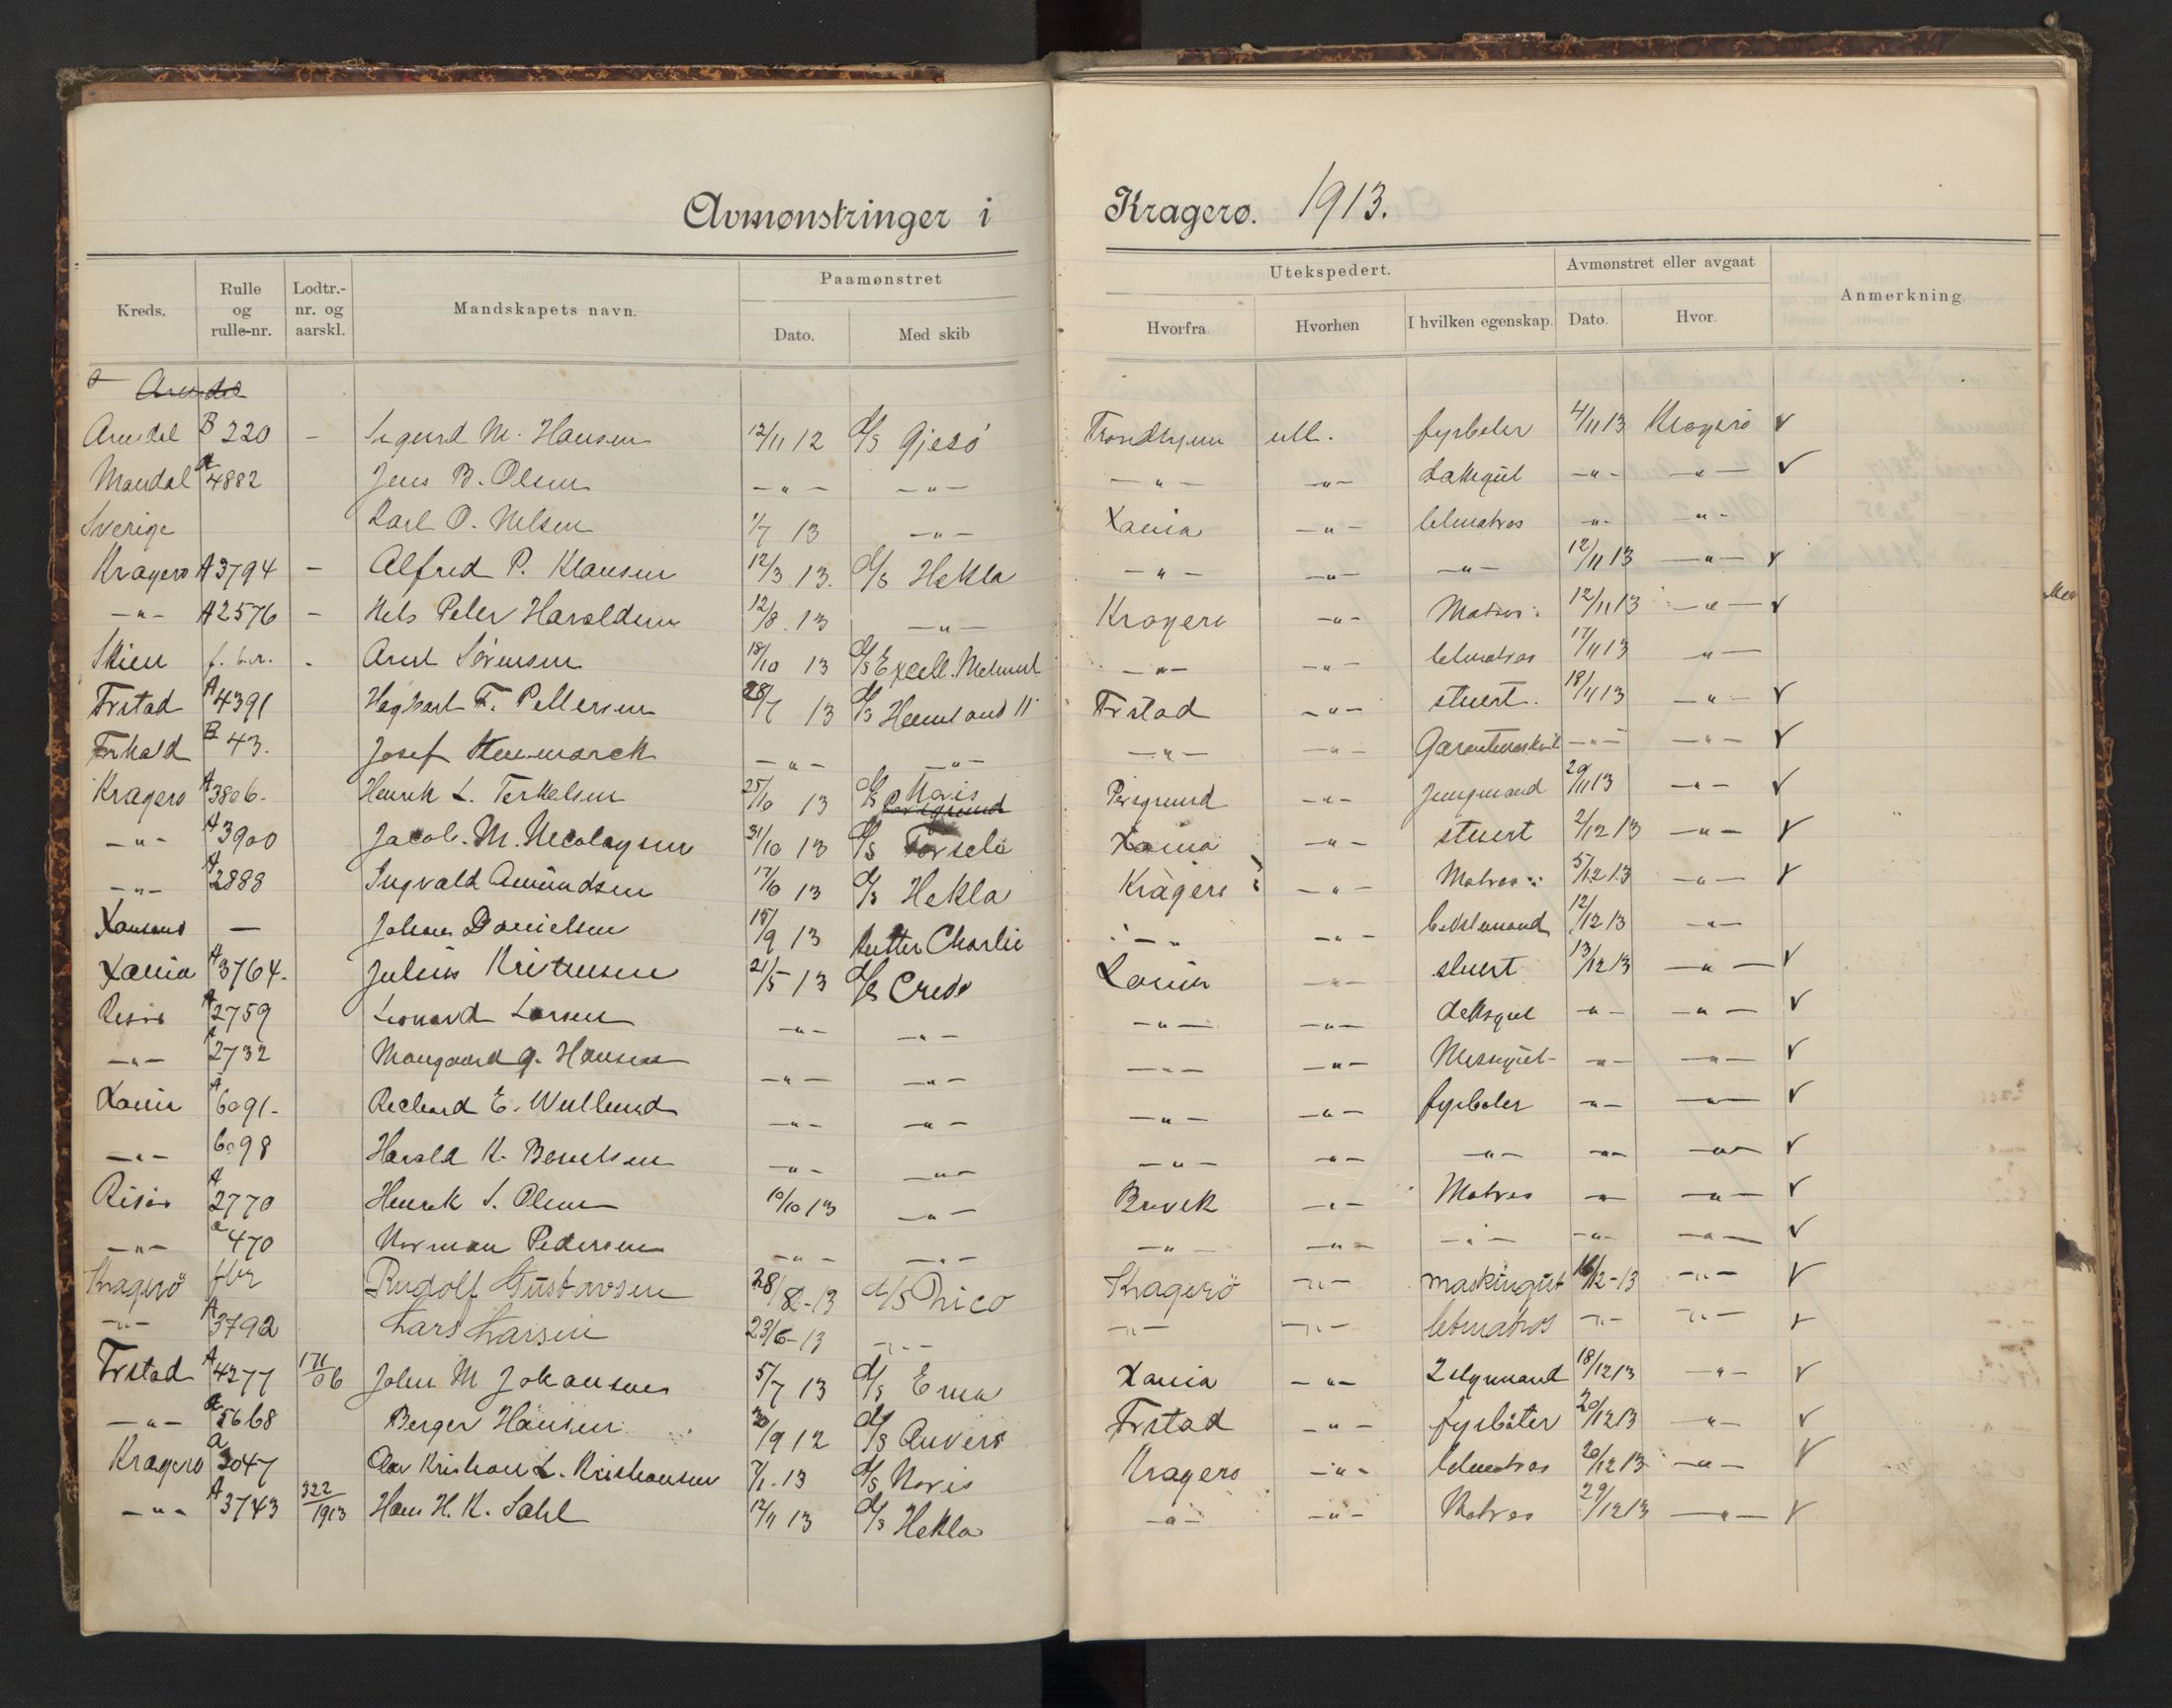 Avmønstringer i Kragerø. 1913.
Kreds. Rulle og rulle-nr. Lodtr.-nr. og aarskl. Mandskapets navn. Paamønstret Utekspedert. Avmønstret eller avgaat Anmerkning
Dato. Med skib Hvorfra Hvorhen I hvilken egenskap. Dato. Hvor.
Arendal
Arendal B 220 – Sigurd M. Hansen 12/11 12 d/s Gjesö Trondhjem utl. fyrböter 4/11 13 Kragerö √
Mandal a 4882 Jens B. Olsen –"– –"– –"– –"– Daksgut –"– –"– √
Sverige Karl O. Nilsen 1/7 13 –"– Xania –"– letmatros –"– –"–
Kragerø A 3794 – Alfred P. Klausen 12/3 13. d/s Hekla –"– –"– –"– 12/11 13 –"– √
–"– A 2576 – Nels Peter Haraldsen 12/8. 13 –"– Kragerø –"– Matros 12/11 13 –"– √
Skien f.b.r. Arnt Sörensen 18/10 13 d/s Excell. Mehnert –"– –"– letmatros 17/11 13 –"–
Frstad A 4391 Haghart F. Pettersen 28/7 13 d/s Heimland II Frstad –"– stuert. 18/11 13 –"– √
Frhald B 43. Josef –"– –"– –"– –"– –"– –"– √
Kragerø A 3806. Henrik L. Terkelsen 25/10 13 d/s Nais Porsgrund Porsgrund –"– jungmand 20/11 13 –"– √
–"– A 3900 Jacob. M. Nicolaysen 31/10 13 d/s Xania –"– stuert 2/12 13 –"– √
–"– A 2888 Ingvald Amundsen 17/10 13 d/s Hekla Kragerø –"– Matros 5/12 13 –"– √
Xansand — Johan Danielsen 15/9 13 Kutter Charlie –"– –"– bestmand 12/12 13 –"–
Xania A 3764. Julius Kristensen 21/5 13 d/s Credo Xania –"– stuert 13/12 13 –"– √
Risör A 2759 Leonard Larsen –"– –"– –"– –"– deksgut –"– –"– √
–"– A 2732 Mangaard G. Hansen –"– –"– –"– –"– Messegut –"– –"– √
Xania A 6091. Richard E. –"– –"– –"– –"– fyrböter –"– –"– √
–"– 6098 Harald K. Berntsen –"– –"– –"– –"– –"– –"– –"– √
Risör A 2770 Henrik S. Olsen 10/10 13 –"– Brevik –"– Matros –"– –"– √
–"– a 470 Norman Pedersen –"– –"– –"– –"– –"– –"– –"– √
Kragerö fbr Rudolf Gustavsen 28/8-13 d/s Nico Kragerö –"– maskingut 16/12-13 –"– √
–"– A 3792 Lars Larsen 23/6-13 –"– –"– –"– letmatros –"– –"– √
Frstad A 4277 171/06 John M Johansen 5/7 13 d/s Erna Xania –"– 2 styrmand 18/12 13 –"– √
–"– a 5668 Berger Hansen 30/9 12 d/s Anvers Frstad –"– fyrböter 20/12 13 –"– √
Kragerø a 3047 Kristian L. Kristiansen 7/1. 13 d/s Noris Kragerø –"– letmatros 20/12 13 –"– √
–"– A 3743 322/1913 Hans H. K. Dahl 12/11 13 d/s Hekla –"– –"– Matros 29/12 13 –"– √